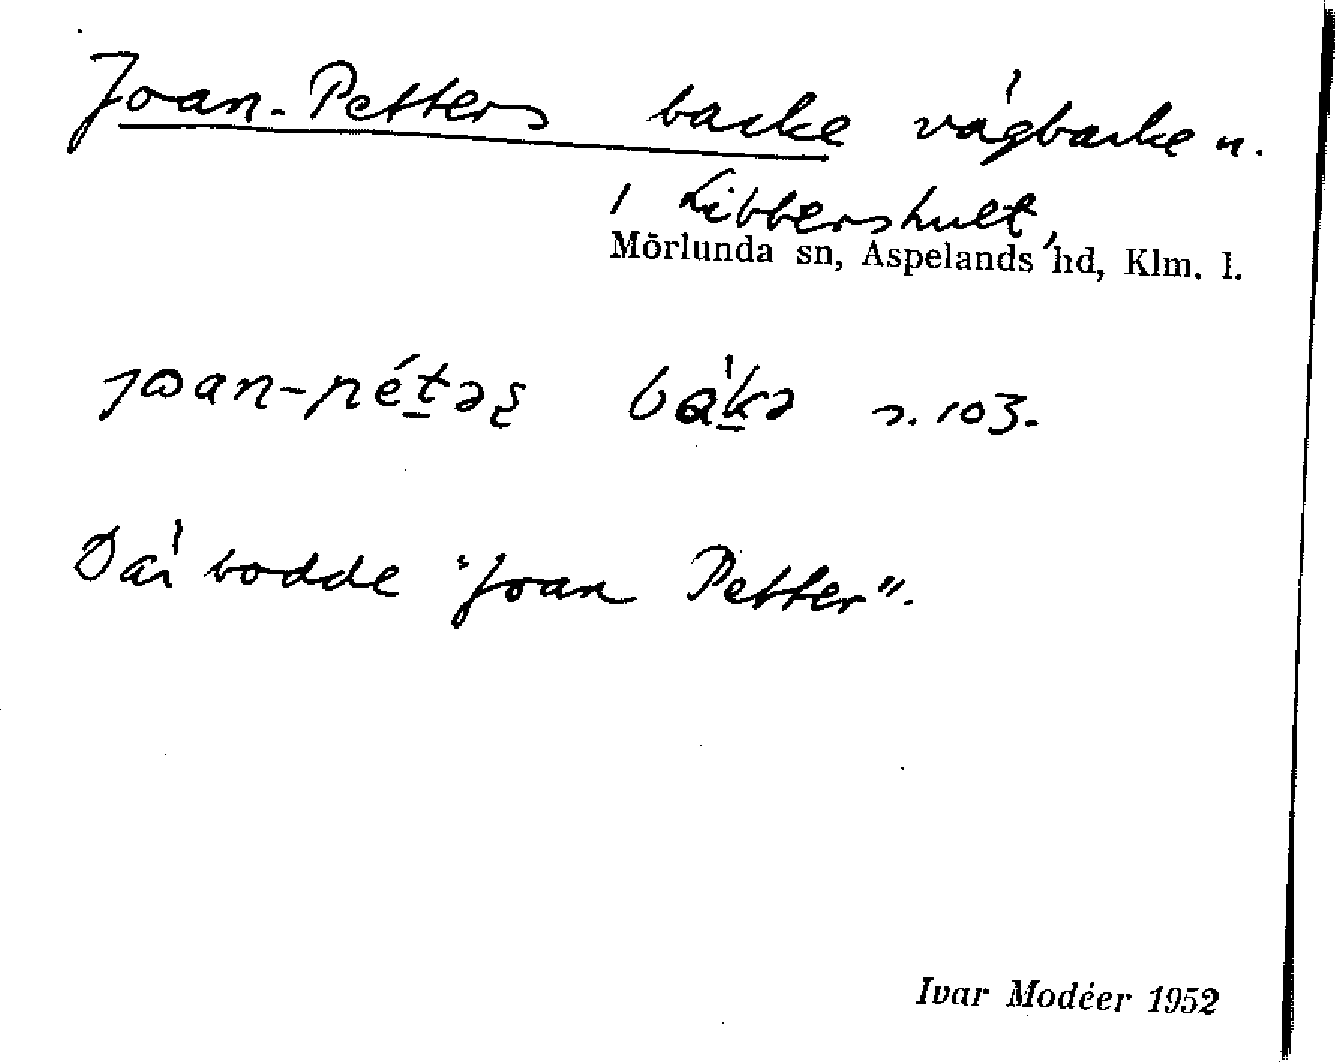 Joan-Petters backe vägbacke n.
i Libbershult,
Mörlunda sn, Aspelands hd, Klm. l.
s. 103.
Där bodde "Joan Petter".
Ivar Modéer 1952